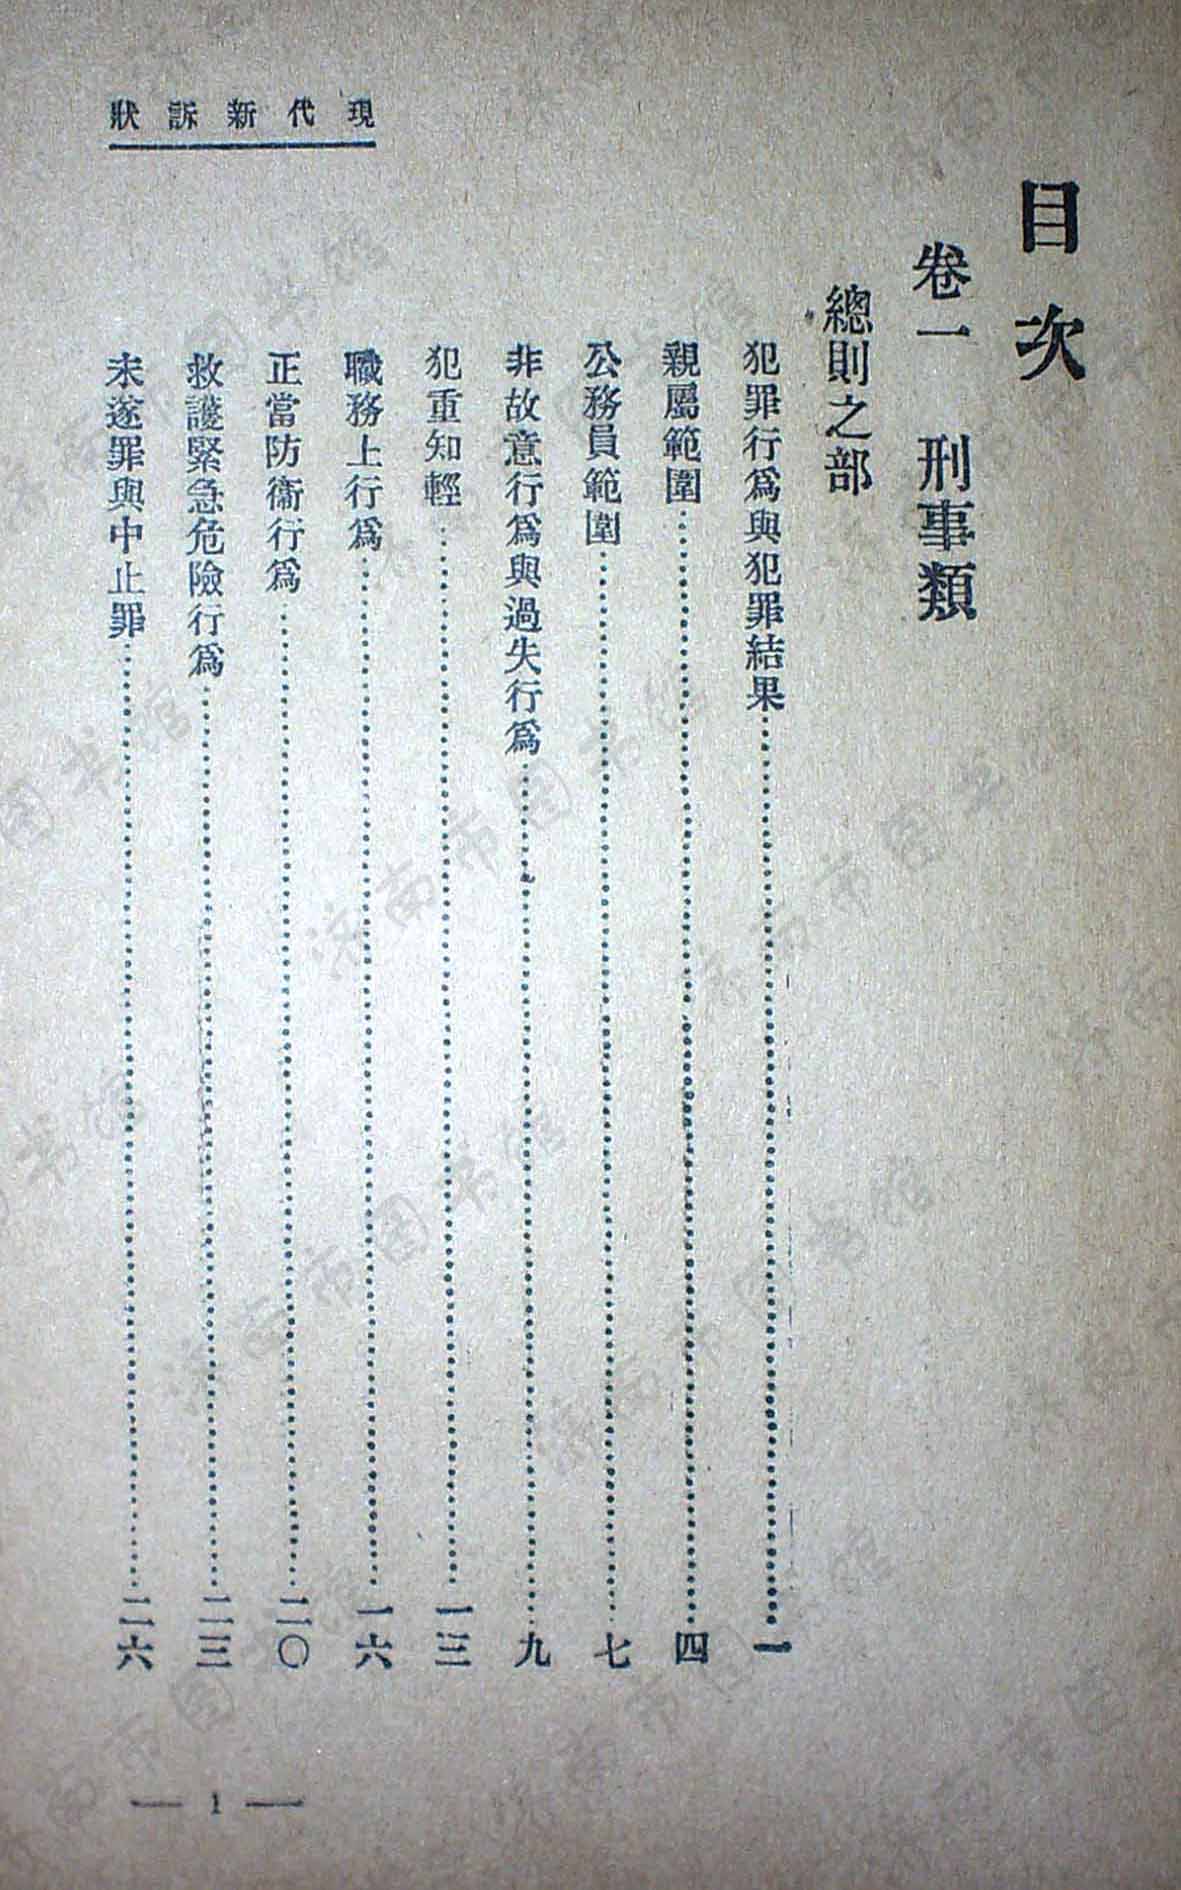 現代新訴狀
目次
卷一　刑事類
總則之部
犯罪行爲與犯罪結果……一
親屬範圍……四
公務員範圍……七
非故意行爲與過失行爲……九
犯重知輕……一三
職務上行爲……一六
正當防衞行爲……二〇
救護緊急危險行爲……二三
未遂罪與中止罪……二六
— 1 —
济南市图书馆